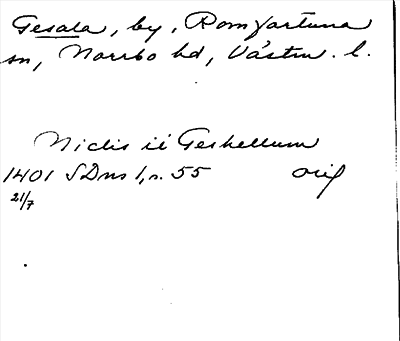 Gesala, by, Romfartuna
sn, Norrbo hd, Västm. l.
Niclis ii Geshellum
1401 SDns 1, s. 55 orig
21/7